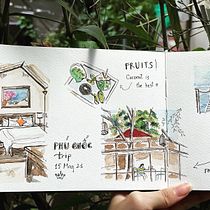 FRUITS!
Coconut is
the best
PHÚ QUỐC
trip
15 May 21